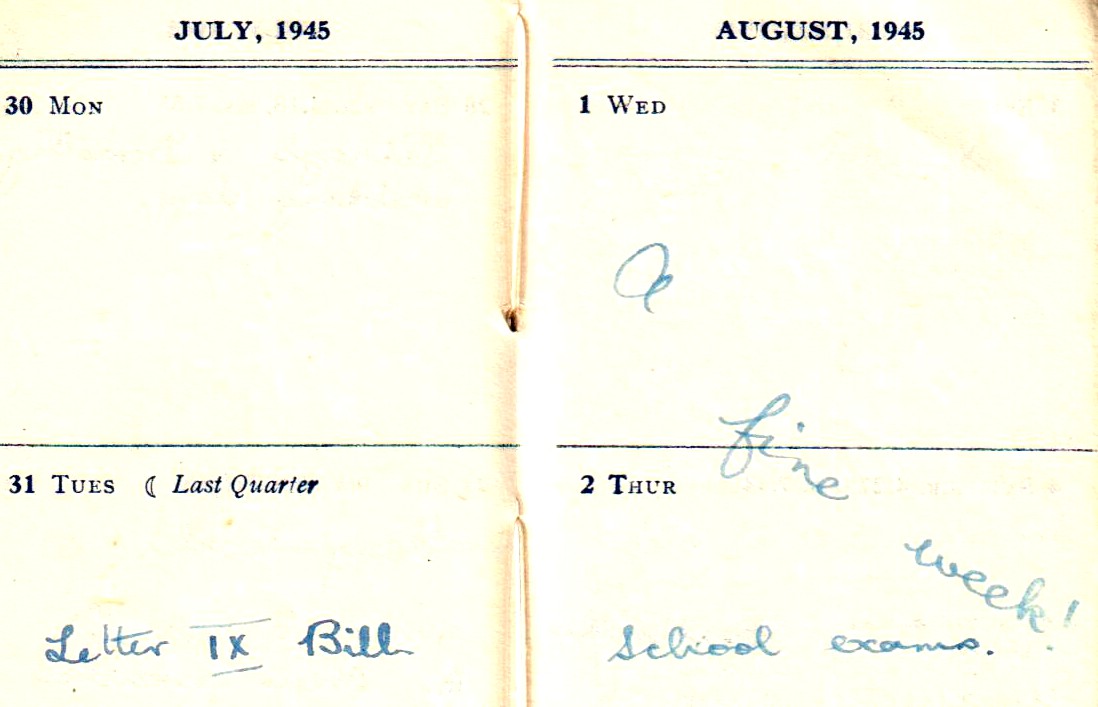 JULY, 1945
30 MON
31 TUES ☾ Last Quarter
Letter IX Bill
AUGUST, 1945
1 WED
A
fine
2 THUR
week!
School exams.